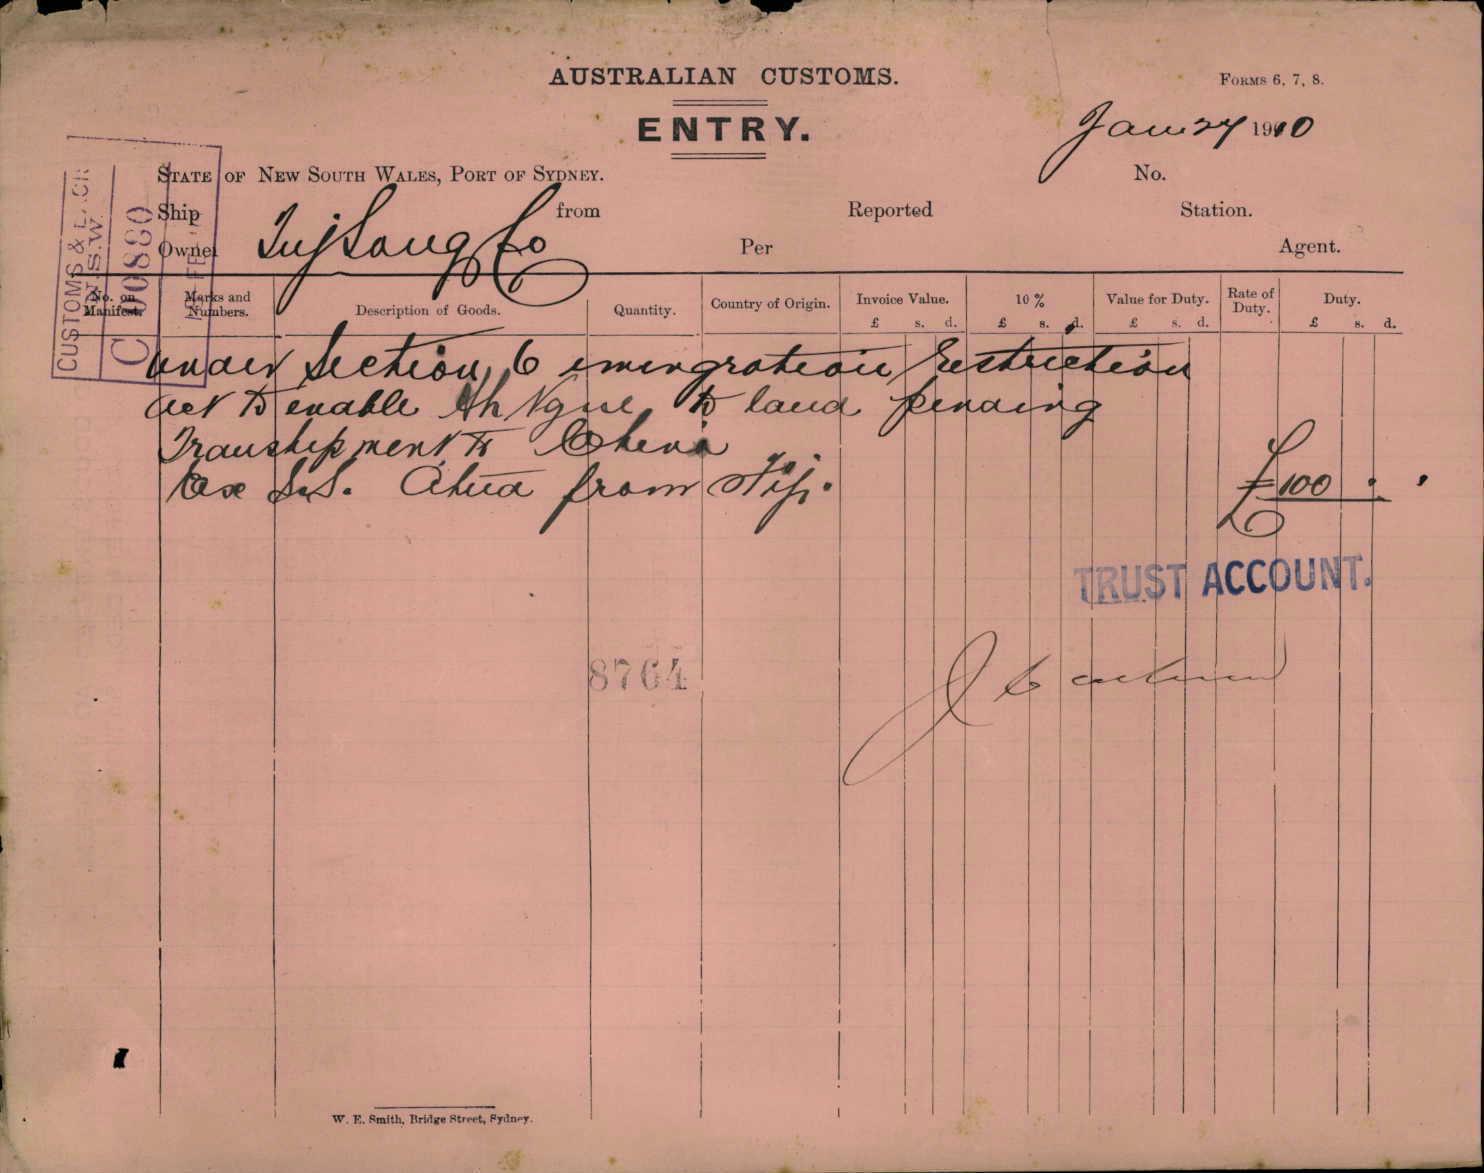 AUSTRALIAN CUSTOMS.
FORMS 6, 7, 8.
ENTRY.
Jan 27 1910
STATE OF NEW SOUTH WALES, PORT OF SYDNEY.
No.
Ship from Reported Station.
Owner Per Agent.
CUSTOMS &
N.S.W.
C 00880
No. on Manifest.
Marks and Numbers.
Description of Goods.
Quantity.
Country of Origin.
Invoice Value.
£ s. d.
10 %
£ s. d.
Value for Duty.
£ s. d.
Rate of Duty.
Duty.
£ s. d.
under Section 6 immigration Restriction
act to enable Ah to land pending
Transhipment to China
Ex S.S. Atua from Fiji.
£100
TRUST ACCOUNT.
8764
W. E. Smith, Bridge Street, Sydney.